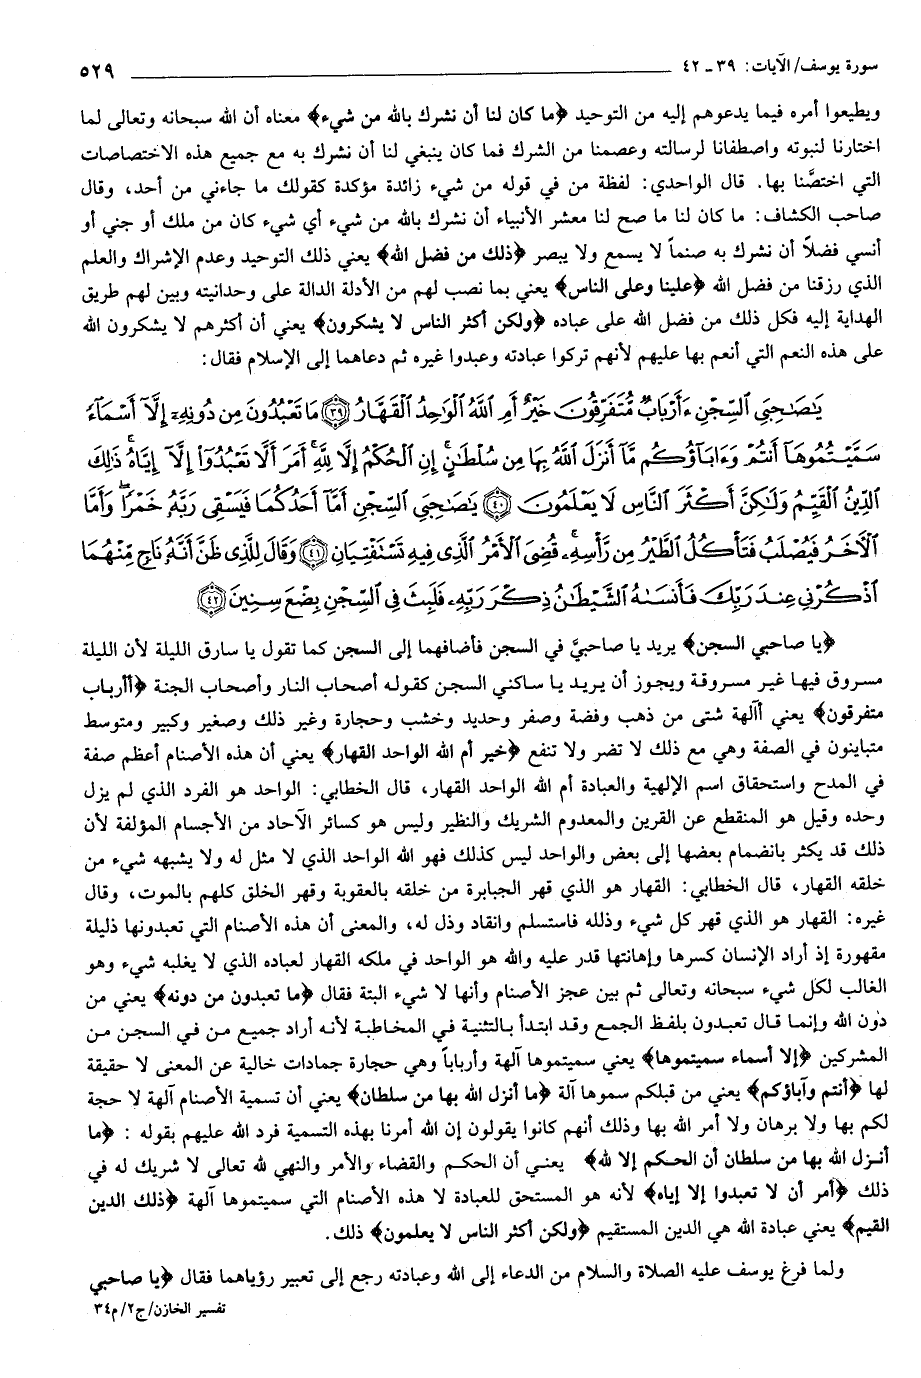 سورة يوسف/ الآيات: ٣٩ ـ ٤٢ ٥٢٩
ويطيعوا أمره فيما يدعوهم إليه من التوحيد ﴿ما كان لنا أن نشرك بالله من شيء﴾ معناه أن الله سبحانه وتعالى لما
اختارنا لنبوته واصطفانا لرسالته وعصمنا من الشرك فما كان ينبغي لنا أن نشرك به مع جميع هذه الاختصاصات
التي اختصَّنا بها. قال الواحدي: لفظة من في قوله من شيء زائدة مؤكدة كقولك ما جاءني من أحد، وقال
صاحب الكشاف: ما كان لنا ما صح لنا معشر الأنبياء أن نشرك بالله من شيء أي شيء كان من ملك أو جني أو
أنسي فضلاً أن نشرك به صنماً لا يسمع ولا يبصر ﴿ذلك من فضل الله﴾ يعني ذلك التوحيد وعدم الإشراك والعلم
الذي رزقنا من فضل الله ﴿علينا وعلى الناس﴾ يعني بما نصب لهم من الأدلة الدالة على وحدانيته وبين لهم طريق
الهداية إليه فكل ذلك من فضل الله على عباده ﴿ولكن أكثر الناس لا يشكرون﴾ يعني أن أكثرهم لا يشكرون الله
على هذه النعم التي أنعم بها عليهم لأنهم تركوا عبادته وعبدوا غيره ثم دعاهما إلى الإسلام فقال:
يَٰصَٰحِبَيِ ٱلسِّجْنِ ءَأَرْبَابٌ مُّتَفَرِّقُونَ خَيْرٌ أَمِ ٱللَّهُ ٱلْوَٰحِدُ ٱلْقَهَّارُ ﴿٣٩﴾ مَا تَعْبُدُونَ مِن دُونِهِۦٓ إِلَّآ أَسْمَآءً
سَمَّيْتُمُوهَآ أَنتُمْ وَءَابَآؤُكُم مَّآ أَنزَلَ ٱللَّهُ بِهَا مِن سُلْطَٰنٍ ۚ إِنِ ٱلْحُكْمُ إِلَّا لِلَّهِ ۚ أَمَرَ أَلَّا تَعْبُدُوٓا۟ إِلَّآ إِيَّاهُ ۚ ذَٰلِكَ
ٱلدِّينُ ٱلْقَيِّمُ وَلَٰكِنَّ أَكْثَرَ ٱلنَّاسِ لَا يَعْلَمُونَ ﴿٤٠﴾ يَٰصَٰحِبَيِ ٱلسِّجْنِ أَمَّآ أَحَدُكُمَا فَيَسْقِى رَبَّهُۥ خَمْرًا ۖ وَأَمَّا
ٱلْءَاخَرُ فَيُصْلَبُ فَتَأْكُلُ ٱلطَّيْرُ مِن رَّأْسِهِۦ ۚ قُضِىَ ٱلْأَمْرُ ٱلَّذِى فِيهِ تَسْتَفْتِيَانِ ﴿٤١﴾ وَقَالَ لِلَّذِى ظَنَّ أَنَّهُۥ نَاجٍ مِّنْهُمَا
ٱذْكُرْنِى عِندَ رَبِّكَ فَأَنسَىٰهُ ٱلشَّيْطَٰنُ ذِكْرَ رَبِّهِۦ فَلَبِثَ فِى ٱلسِّجْنِ بِضْعَ سِنِينَ ﴿٤٢﴾
﴿يا صاحبي السجن﴾ يريد يا صاحبيَّ في السجن فأضافهما إلى السجن كما تقول يا سارق الليلة لأن الليلة
مسروق فيها غير مسروقة ويجوز أن يريد يا ساكني السجن كقوله أصحاب النار وأصحاب الجنة ﴿أأرباب
متفرقون﴾ يعني أآلهة شتى من ذهب وفضة وصفر وحديد وخشب وحجارة وغير ذلك وصغير وكبير ومتوسط
متباينون في الصفة وهي مع ذلك لا تضر ولا تنفع ﴿خير أم الله الواحد القهار﴾ يعني أن هذه الأصنام أعظم صفة
في المدح واستحقاق اسم الإلهية والعبادة أم الله الواحد القهار، قال الخطابي: الواحد هو الفرد الذي لم يزل
وحده وقيل هو المنقطع عن القرين والمعدوم الشريك والنظير وليس هو كسائر الآحاد من الأجسام المؤلفة لأن
ذلك قد يكثر بانضمام بعضها إلى بعض والواحد ليس كذلك فهو الله الواحد الذي لا مثل له ولا يشبهه شيء من
خلقه القهار، قال الخطابي: القهار هو الذي قهر الجبابرة من خلقه بالعقوبة وقهر الخلق كلهم بالموت، وقال
غيره: القهار هو الذي قهر كل شيء وذلله فاستسلم وانقاد وذل له، والمعنى أن هذه الأصنام التي تعبدونها ذليلة
مقهورة إذ أراد الإنسان كسرها وإهانتها قدر عليه والله هو الواحد في ملكه القهار لعباده الذي لا يغلبه شيء وهو
الغالب لكل شيء سبحانه وتعالى ثم بين عجز الأصنام وأنها لا شيء البتة فقال ﴿ما تعبدون من دونه﴾ يعني من
دون الله وإنما قال تعبدون بلفظ الجمع وقد ابتدأ بالتثنية في المخاطبة لأنه أراد جميع من في السجن من
المشركين ﴿إلا أسماء سميتموها﴾ يعني سميتموها آلهة وأرباباً وهي حجارة جمادات خالية عن المعنى لا حقيقة
لها ﴿أنتم وآباؤكم﴾ يعني من قبلكم سموها آلة ﴿ما أنزل الله بها من سلطان﴾ يعني أن تسمية الأصنام آلهة لا حجة
لكم بها ولا برهان ولا أمر الله بها وذلك أنهم كانوا يقولون إن الله أمرنا بهذه التسمية فرد الله عليهم بقوله : ﴿ما
أنزل الله بها من سلطان أن الحكم إلا لله﴾ يعني أن الحكم والقضاء والأمر والنهي لله تعالى لا شريك له في
ذلك ﴿أمر أن لا تعبدوا إلا إياه﴾ لأنه هو المستحق للعبادة لا هذه الأصنام التي سميتموها آلهة ﴿ذلك الدين
القيم﴾ يعني عبادة الله هي الدين المستقيم ﴿ولكن أكثر الناس لا يعلمون﴾ ذلك.
ولما فرغ يوسف عليه الصلاة والسلام من الدعاء إلى الله وعبادته رجع إلى تعبير رؤياهما فقال ﴿يا صاحبي
تفسير الخازن/ج٢/م٣٤